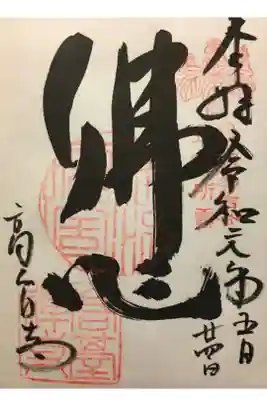 奉拝 令和元年五月
廿四日
佛心
高台寺